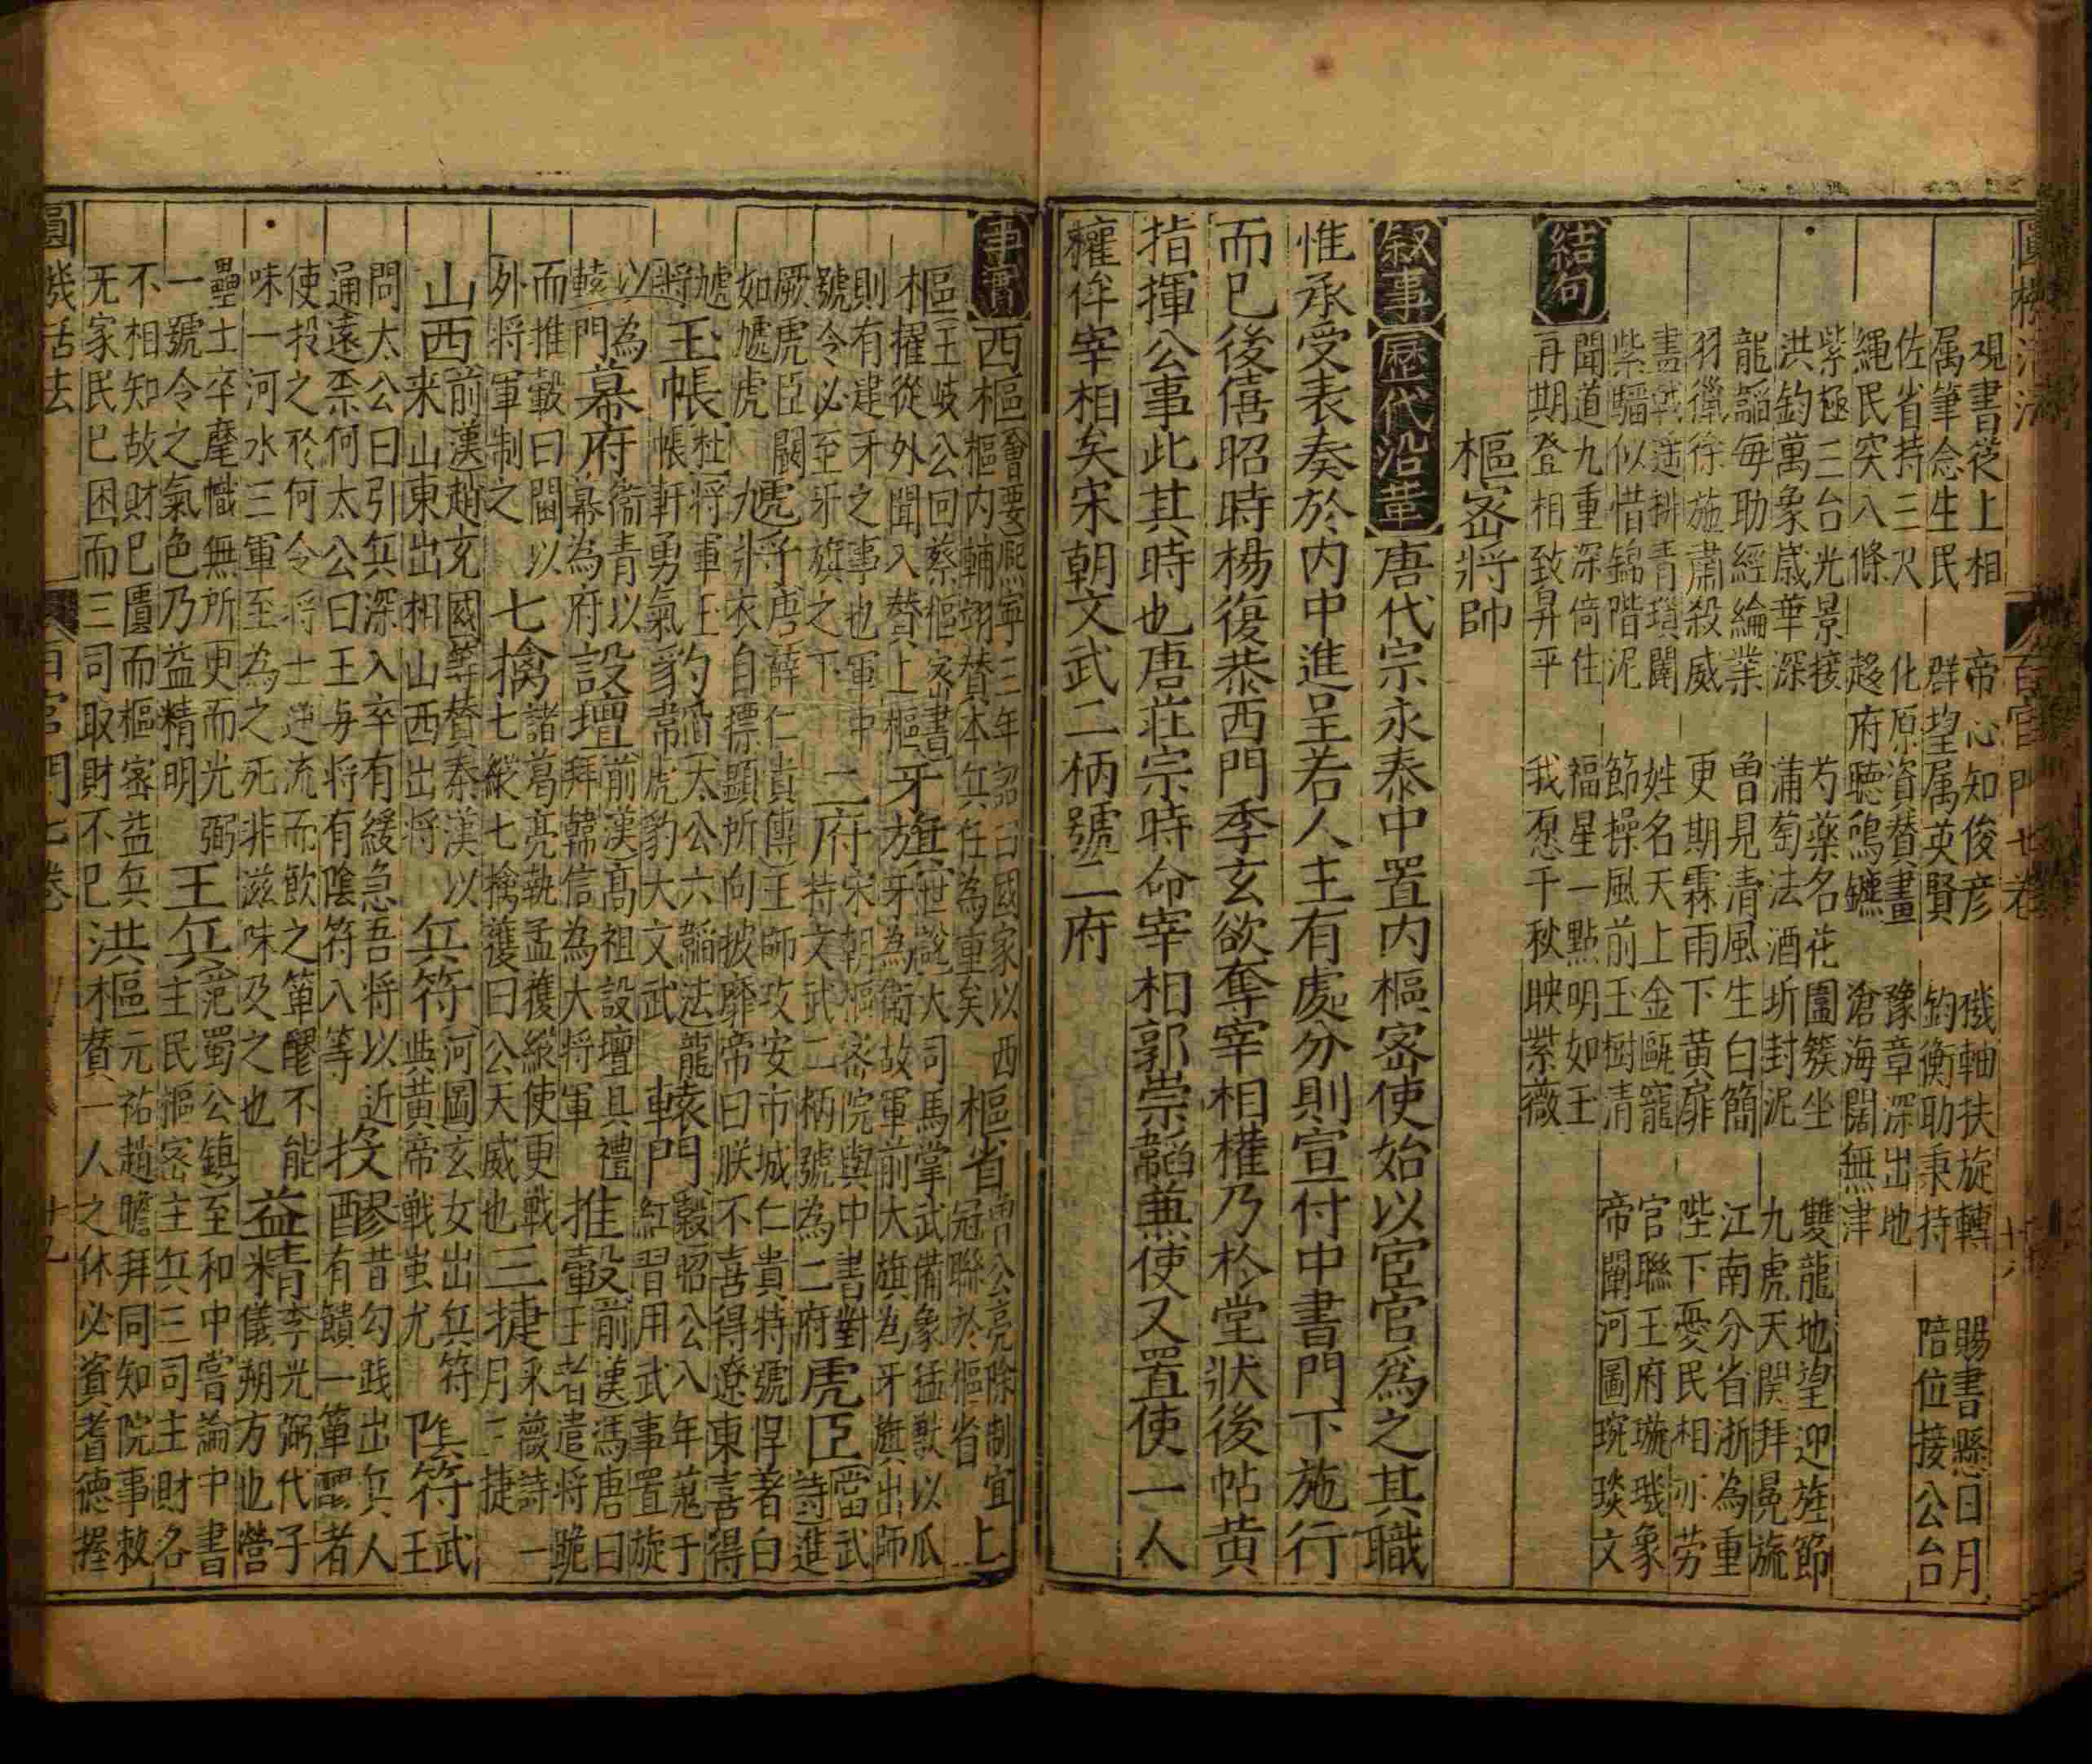 圓機活法 百官門七卷 十八
硯書從上相 帝心知俊彦 機軸扶旋轉 賜書懸日月
属筆念生民 群望属英賢 鈞衡助秉持 陪位接公台
佐省持三尺 化原資賛畫 豫章深出地
繩民突八條 趍府聽鵷鑣 滄海闊無津
紫極三台光景接 芍藥名花圍簇坐 雙龍地望迎旌節
洪鈞萬象歳華深 蒲萄法酒坼封泥 九虎天関拜冕旒
龍韜毎助經綸業 曽見清風生白簡 江南分省浙為重
羽獵徐施肅殺威 更期霖雨下黄扉 陛下憂民相亦劳
結句
畫戟排青瑣闥 姓名天上金甌寵 官聯王府璇璣象
紫騮似惜錦階泥 節操風前玉樹清 帝闡河圖琬琰文
聞道九重深倚住 福星一點明如玉
再期登相致昇平 我愿千秋映紫薇
樞宻將帥
叙事 歴代沿革 唐代宗永泰中置内樞宻使始以宦官爲之其職
惟承受表奏於内中進呈若人主有處分則宣付中書門下施行
而已後僖昭時楊復恭西門季玄欲奪宰相權乃於堂狀後帖黄
指揮公事此其時也唐莊宗時命宰相郭崇韜兼使又置使一人
權侔宰相矣宋朝文武二柄號二府
事實 西樞 會要熈寧三年詔曰國家以西樞内輔翊賛本兵任為重矣 樞省 曽公亮除制宜冠聯於樞省 上
樞 王岐公回蔡樞宻書擢從外聞入賛上樞 牙旗 世説大司馬掌武備象猛獸以爪牙為衛故軍前大旗為牙旗出師
則有建牙之事也軍中號令必至牙旗之下 二府 宋朝樞宻院與中書對持文武二柄號為二府 虎臣 當武詩進
厥虎臣闞如虓虎 虓將 唐薛仁貴傳王師攻安市城仁貴特號悍著白衣自摽顯所向披靡帝曰朕不喜得遼東喜得
虓將 玉帳 杜將軍玉帳軒勇氣 豹韜 太公六韜法龍韋虎豹大文武 轅門 穀昭公八年蒐于紅習用武事置旋
以為轅門 幕府 衞青以幕為府 設壇 前漢高祖設壇具禮拜韓信為大將軍 推轂 前漢馮唐曰王者遣将跪
而推轂曰閫以外将軍制之 七擒 諸葛亮執孟獲縱使更戰七縱七擒獲曰公天威也 三捷 采薇詩一月三捷
山西 前漢趙充國等賛秦漢以来山東出相山西出将 兵符 河圖玄女出兵符與黄帝戦蚩尤 隂符 武王
問太公曰引兵深入卒有緩急吾将以近通遠柰何太公曰王与将有隂符八等 投醪 昔勾践出兵人有饋一簞醪者
使投之於何令将士逆流而飲之簞醪不能味一河水三軍至為之死非滋味及之也 益精 李光弼代子儀朔方也營
壘士卒麾幟無所更而光弼一號令之氣色乃益精明 王兵 范蜀公鎮至和中嘗論中書主民樞宻主兵三司主財各
不相知故財已匱而樞宻益兵无家民已困而三司取財不已 洪樞 元祐趙瞻拜同知院事敕賛一人之休必資耆德握
圓機活法 百官門七卷 十九